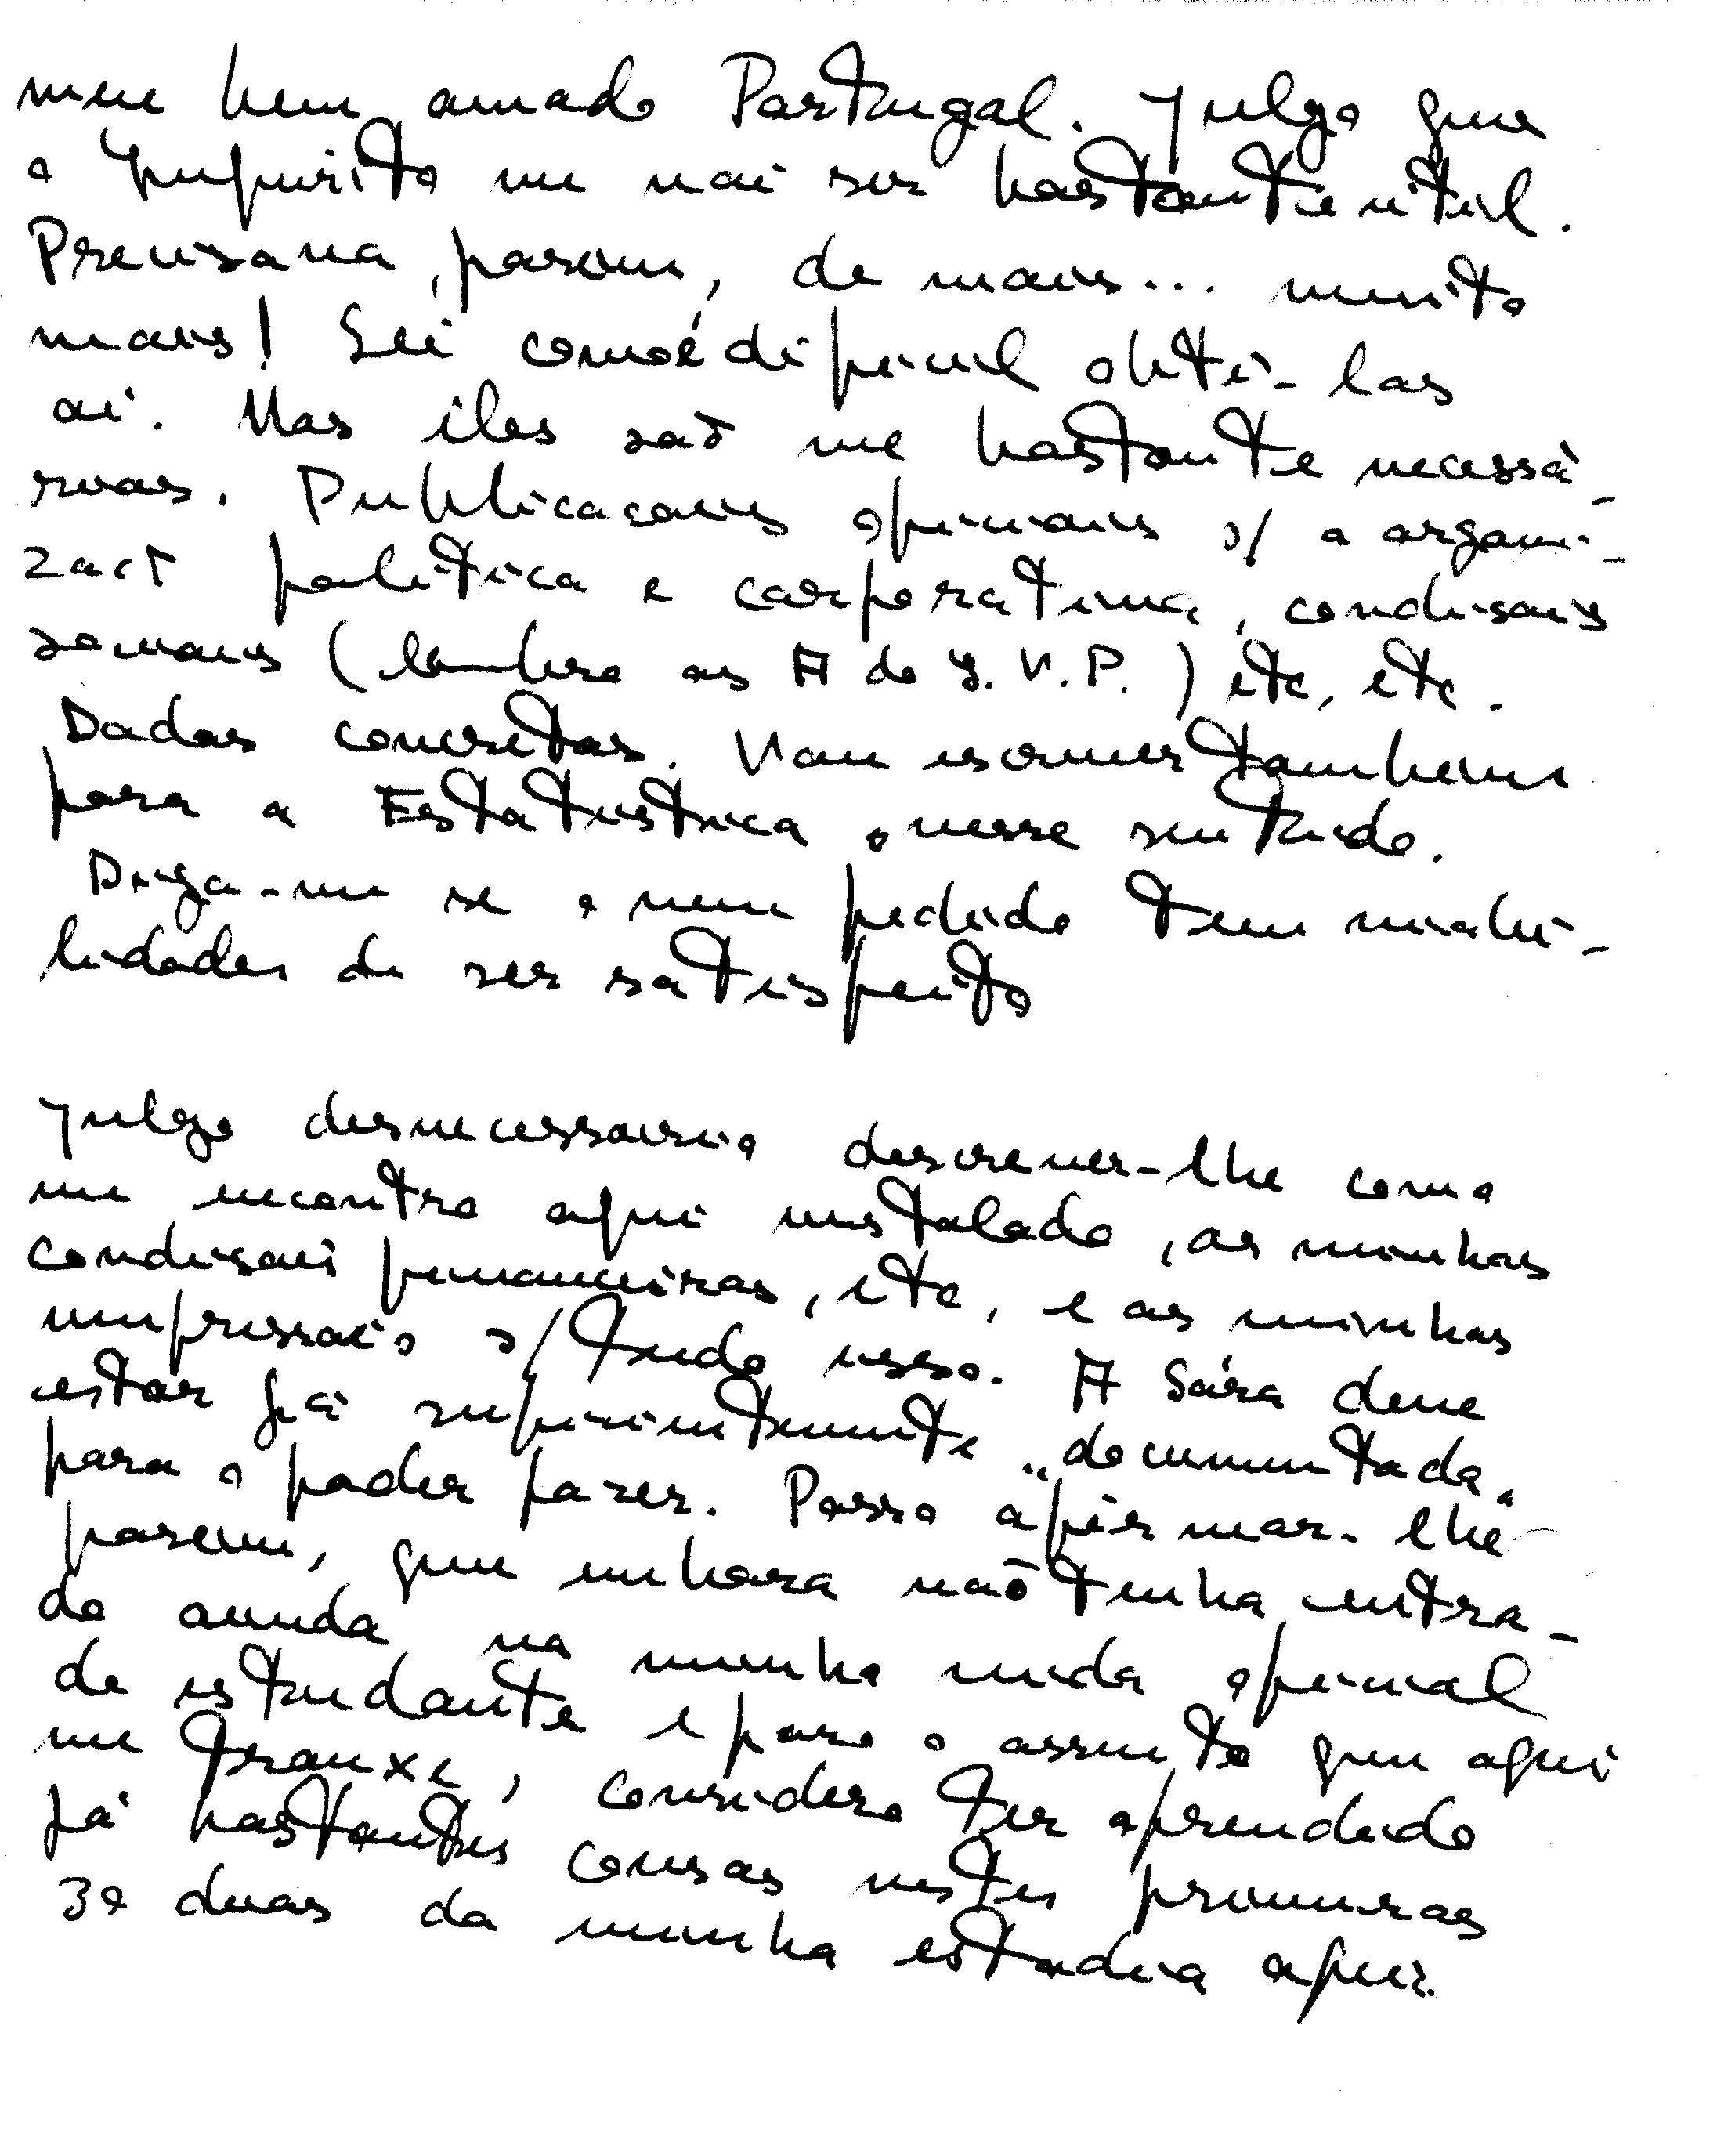 meu bem amado Portugal. Julgo que
o Inquérito me vai ser bastante util.
Precisava, porem, de mais... muito
mais! Sei como é dificil obte-las
ai. Mas eles são me bastante necessá-
rias. Publicacões oficiais s/ a organi-
zacão politica e corporativa, condições
(lembro as A do I.V.P.) etc, etc.
Dados concretos. Vou escrever tambem
para a Estatistica, nesse sentido.
Diga-me se o meu pedido tem viabi-
lidades de ser satisfeito
Julgo desnecessario descrever-lhe como
me encontro aqui instalado, as minhas
condições financeiras, etc, e as minhas
impressões s/ tudo isso. A Sára deve
estar já suficientemente "documentada"
para o poder fazer. Posso afirmar-lhe
porem, que embora não tenha entra-
do ainda na minha vida oficial
de estudante e para o assunto que aqui
me trouxe, considero ter aprendido
já bastantes cousas nestes primeiros
30 dias da minha estadia aqui.